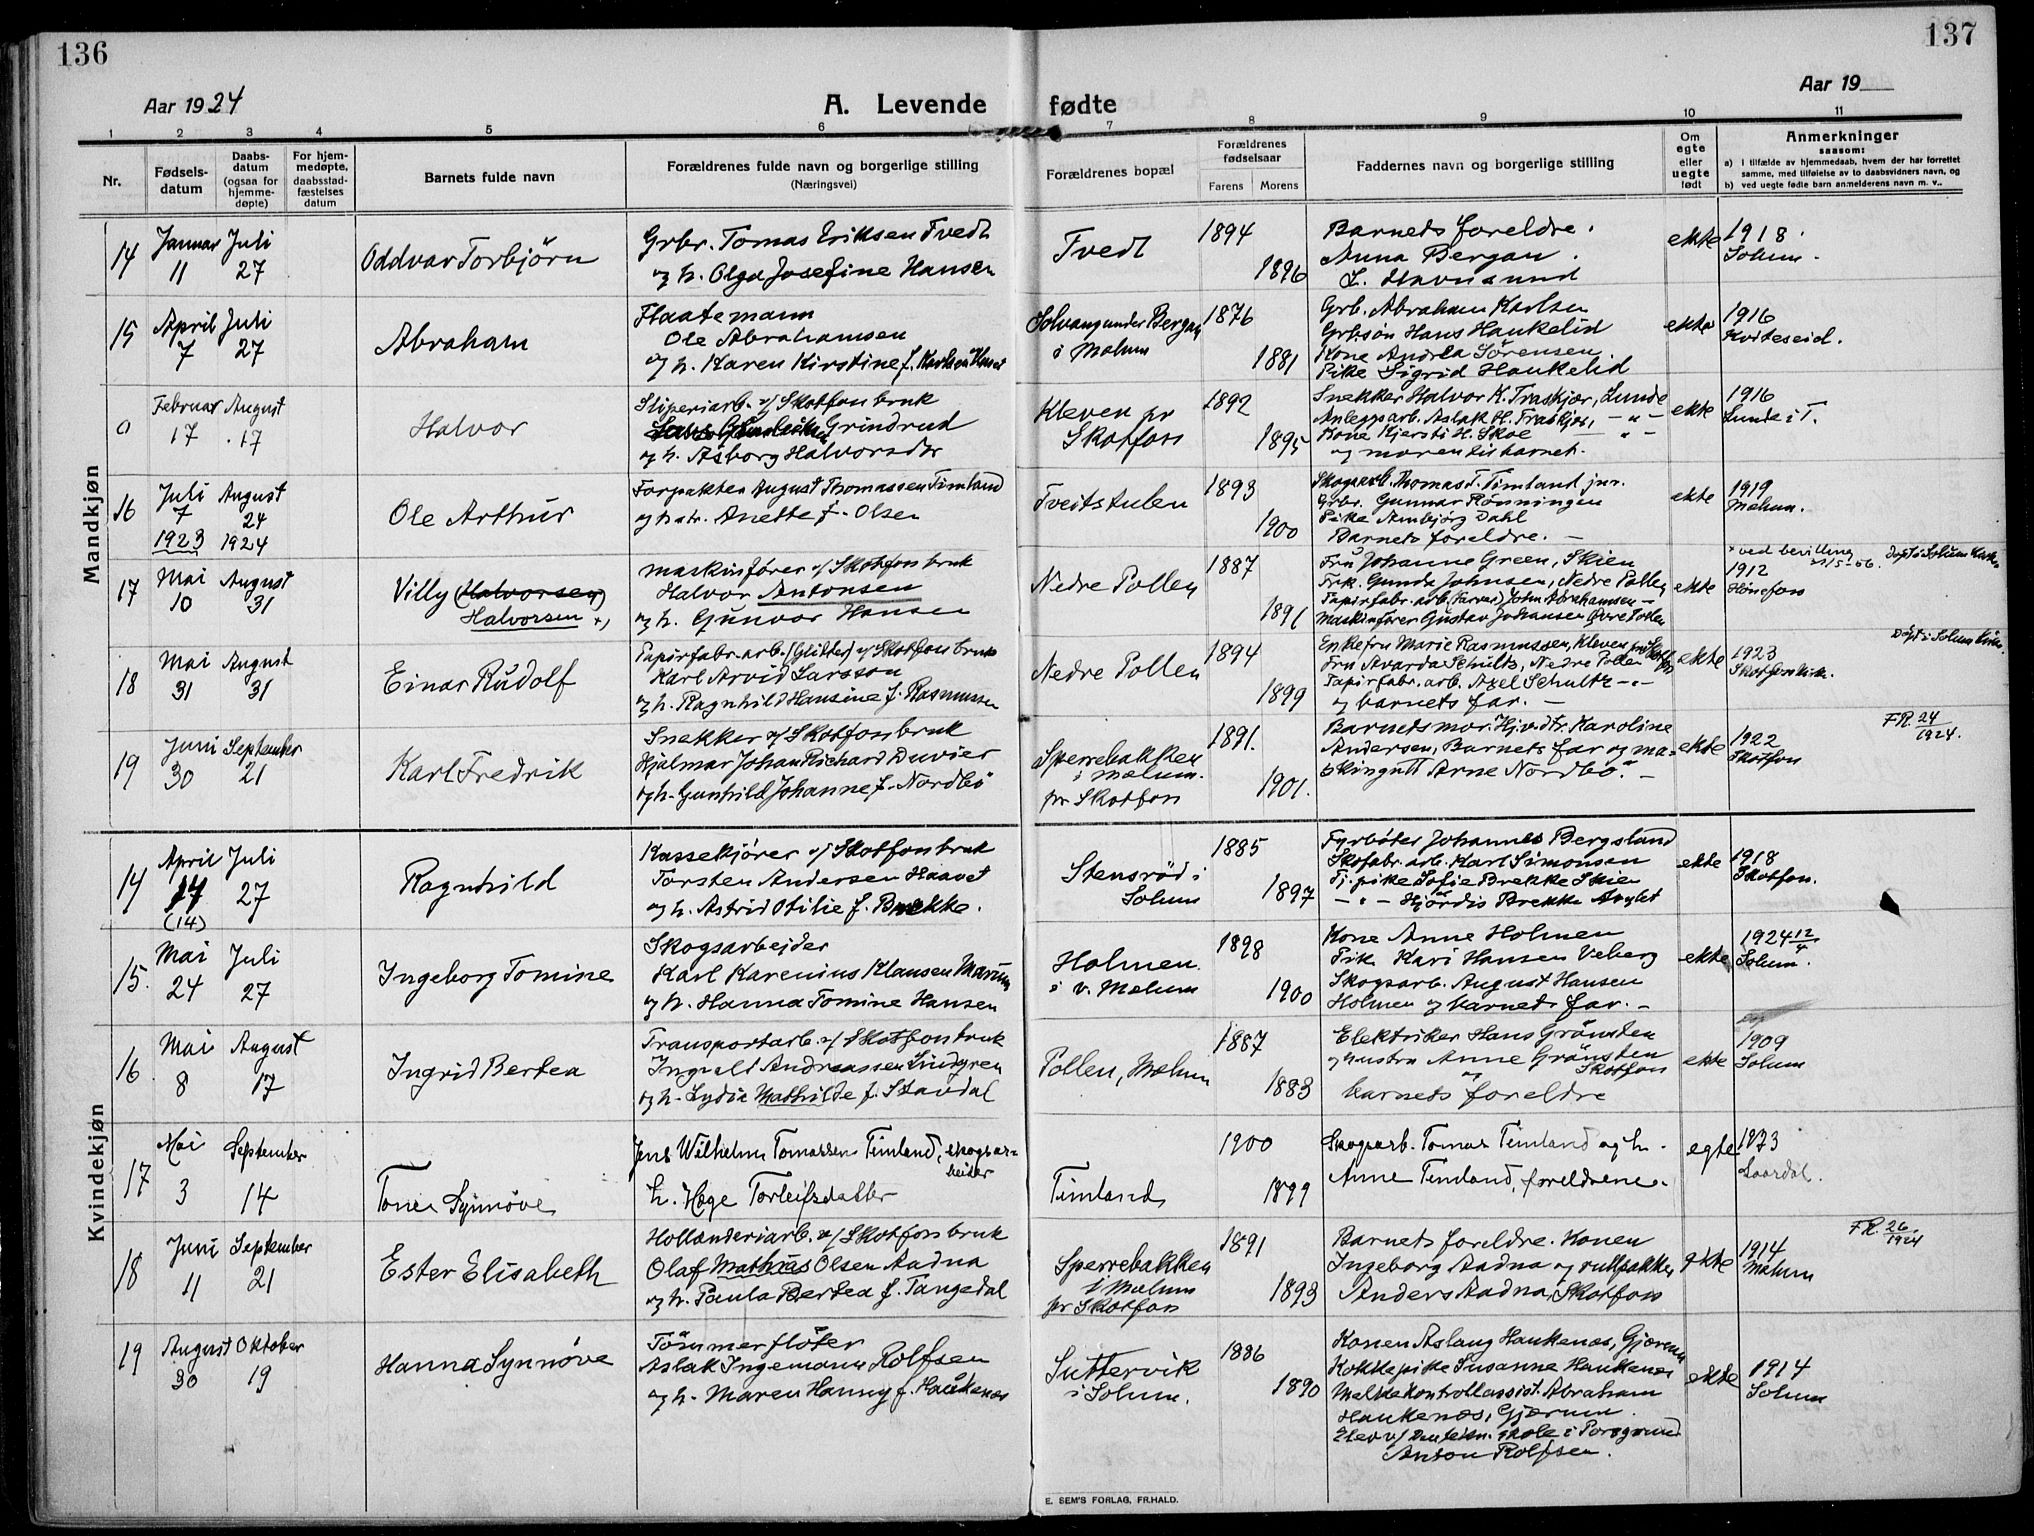 136
137
Aar 1924
A. Levende fødte
Aar 19
1 2 3 4 5 6 7 8 9 10 11
Nr.
Fødsels-datum
Daabs-datum (ogsaa for hjemme-døpte)
For hjem-medøpte, daabsstad-fæstelses datum
Barnets fulde navn
Forældrenes fulde navn og borgerlige stilling
(Næringsvei)
Forældrenes bopæl
Forældrenes fødselsaar
Farens Morens
Faddernes navn og borgerlige stilling
Om egte eller uegte født
Anmerkninger
saasom:
a) I tilfælde av hjemmedaab, hvem der har forrettet samme, med tilføielse av to daabsvidners navn, og
b) ved uegte fødte barn anmelderens navn m. v..
Mandkjøn
14 Januar 11 Juli 27
Oddvar Torbjörn
Grbr. Tomas Eriksen Tvedt
og h. Olga Josefine Hansen
Tvedt
1894
1896
Barnets foreldre.
Anna Bergan.
ekte
1918
Solum.
15 April 7 Juli 27
Abraham
Flaatemann
Ole Abrahamsen
og h. Karen Kirstine f. Karlsen
Solvang under Bergan
i Melum
1876
1881
Grb. Abraham Karlsen
Grbsön Hans Haukelid
Kone Andrea Sörensen.
Pike Sigrid Haukelid
ekte
1916
Kviteseid.
0 Februar 17 August 17
Halvor
Sliperiarb. v/ Skotfos bruk
Grindrud
og h. Asborg Halvorsdtr
Kleven pr
Skotfoss
1892
1895
Snekker Halvor K. Traskjær, Lunde
Anlegsarb. Aslak H. Traskjær, — " —
Kone Kjersti H. Skoe — " —
og moren til barnet.
ekte
1916
Lunde i T.
16 Juli 7 1923 August 24 1924
Ole Arthur
Forpakter August Thomassen Timland
og hstr. Anette f. Olsen
Tveitstulen
1893
1900
Skogsarb. Thomas T. Timland jnr.
Grbr. Gunnar Rönningen
Pike Ambjörg Dahl
Barnets foreldre. —
ekte
1919
Melum.
17 Mai 10 August 31
Villy (Halvorsen)
Halvorsen x)
Maskinfører v/ Skotfos bruk
Halvor Antonsen
og h. Gunvor Hansen
Nedre Pollen
1887
1891
Fru Johanne Green, Skien
Frk. Gunda Johnsen, Nedre Pollen
Papirfabr. arb. (Farver) John Abrahamsen —
Maskinfører Gustav Johansen Øvre Pollen
ekte
x ved bevilling
1912
Hönefoss
Döpt i Solum Kirke
18 Mai 31 August 31
Einar Rudolf
Papirfabr. arb. (Glitter) v/ Skotfos bruk
Karl Arvid Larsson
og h. Ragnhild Hansine f. Rasmussen
Nedre Pollen
1894
1899
Enkefru Marie Rasmussen, Kleven pr Skotfos
Fru Avarda Schultz, Nedre Pollen
Papirfabr. arb. Axel Schultz — " —
og barnets far. —
ekte
1923
Skotfoss kirk.
Döpt i Solum Kirke.
19 Juni 30 September 21
Karl Fredrik
Snekker v/ Skotfos bruk
Hjalmar Johan Richard Duvier
og h. Gunhild Johanne f. Nordbö
Sperrebakken
i Melum.
pr Skotfoss
1891.
1901.
Barnets mor. Hjv. dtr. Karoline
Andersen, Barnets far og ma-
skingutt Arne Nordbö. —
ekte
1922
Skotfoss
FR. 24/1924.
Kvindekjøn
14 April 14 (14) Juli 27
Ragnhild
Kassekjører v/ Skotfos bruk
Torsten Andersen Haavet
og h. Astrid Otilie f. Brekke.
Stensrød i
Solum
1885
1897
Fyrböter Johannes Bergsland
Skofabr. arb. Karl Simonsen
Tj. pike Sofie Brekke Skien
— " — Hjördis Brekke
ekte
1918
Skotfoss.
15. Mai 24 Juli 27
Ingeborg Tomine
Skogsarbeider
Karl Karenius Klausen
og h. Hanna Tomine Hansen
Holmen
i V. Melum
1898
1900
Kone Anne Holmen
Pik. Kari Hansen Veberg
Skogsarb. August Hansen
Holmen og barnets far. —
ekte
1924 12/4
Solum.
16 Mai 8 August 17
Ingrid Bertea
Transportarb. v/ Skotfos bruk
Ingvald Andreassen Lindgren
og h. Lydia Mathilde f. Stavdal
Pollen, Melum
1887
1883
Elektriker Hans Grönsten
og hustru Anne Grönsten
og Skotfoss
barnets foreldre
ekte
1909
Solum
17 Mai 3 September 14
Tone Synnöve
Jens Wilhelm Tomassen Timland, skogsar-
beider
h. Hege Torleifsdatter
Timland
1900
1899
Skogsarb. Tomas Timland og h.
Anne Timland, foreldrene.
egte
1923
Laardal.
18 Juni 11 September 21
Ester Elisabeth
Hollenderiarb. v/ Skotfos bruk
Olaf Mathias Olsen Aadna
og h. Paula Bertea f. Tangedal
Sperrebakken
i Melum
pr Skotfoss
1891
1893
Barnets foreldre. Konen
Ingeborg Aadna og rullpakker
Anders Aadna, Skotfoss
ekte
1914
Melum
FR. 26/1924
19 August 30 Oktober 19
Hanna Synnöve
Tömmerflöter
Aslak Ingemann Rolfsen
og h. Maren Hanny f. Haukenæs
Suttervik
i Solum.
1886
1890
Konen Aslaug Haukenæs, Gjærum
Kokkepike Susanne Haukenæs
Melkekontrollassist. Abraham
Haukenæs, Gjærum.
Elev v/ skole i Porsgrund
Anton Rolfsen.
ekte
1914
Solum
E. SEM'S FORLAG, FR.HALD.